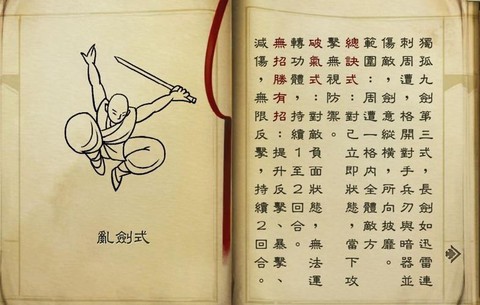 獨孤九劍第三式，長劍如迅雷連
刺周遭，格開對手兵刃與暗器並
傷敵，劍意縱橫，所向披靡。
範圍：周遭一格內全體敵方
總訣式：對己立即狀態，當下攻
擊無視防禦。
破氣式：對敵負面狀態，無法運
轉功體，持續1至2回合。
無招勝有招：提升反擊、暴擊、
減傷，無限反擊，持續2回合。
亂劍式